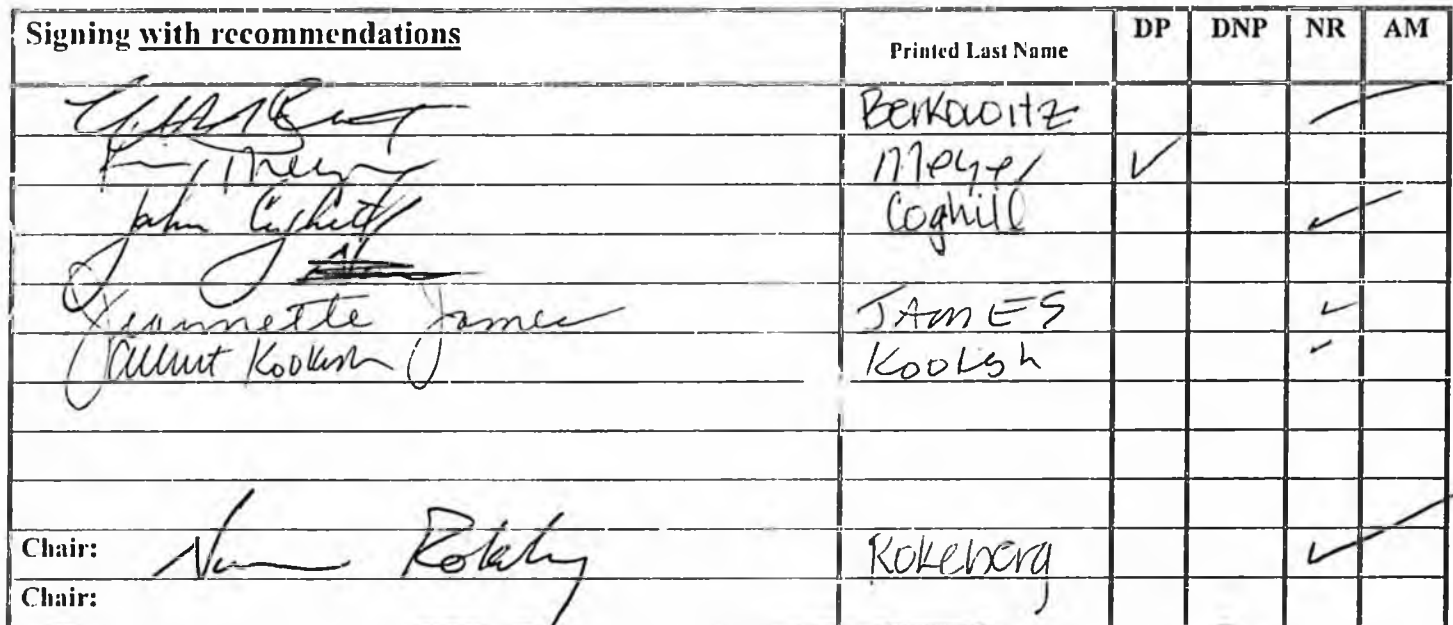 Signing with recommendations Printed Last Name DP DNP NR AM
Berkowitz
Meyer ✓
John Coghill Coghill ✓
Jeannette James JAMES ✓
Albert Kookesh Kookesh ✓
Chair: Norman Rokeberg Rokeberg ✓
Chair: